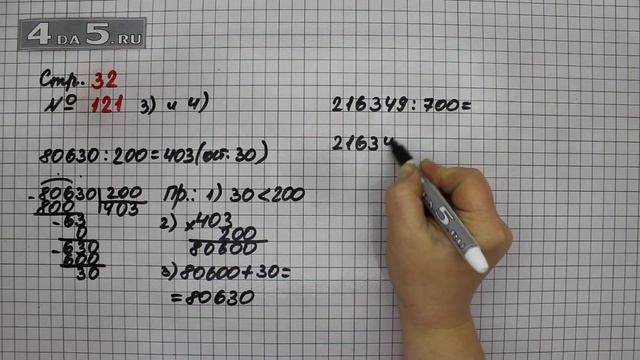 4DA5.RU
Стр. 32
№ 121 3) и 4)
80630 : 200 = 403 (ост. 30)
- 80630 | 200
800 | 403
- 63
0
- 630
600
30
Пр.: 1) 30 < 200
2) × 403
200
80600
3) 80600 + 30 =
= 80630
216349 : 700 =
21634